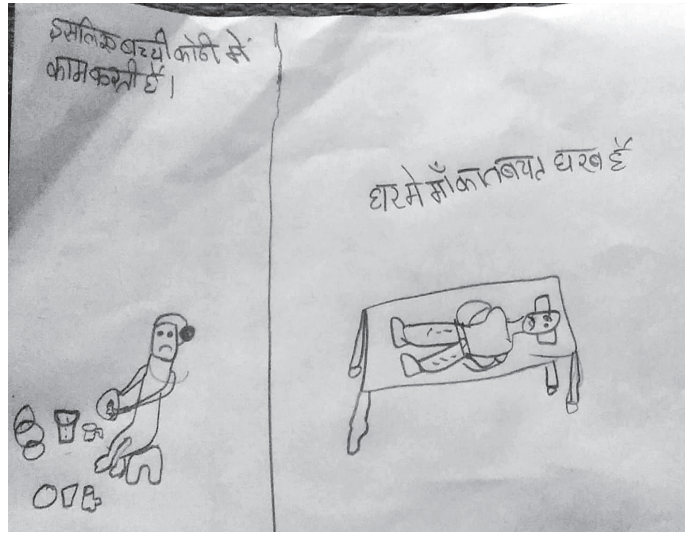 इसलिऐ बच्ची कोठी में
काम करती है।
घर मे माँ का तबयत घरब है